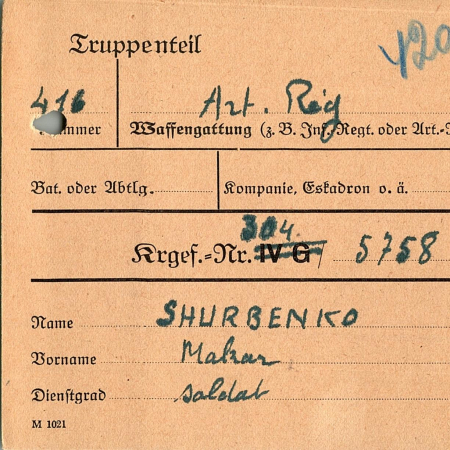 Truppenteil
420
416 Art. Reg
Nummer Waffengattung (z. B. Inf.-Regt. oder Art.-
Bat. oder Abtlg. Kompanie, Eskadron o. ä.
304.
Krgef.-Nr. IV G 5758
Name SHURBENKO
Vorname Makar
Dienstgrad soldat
M 1021